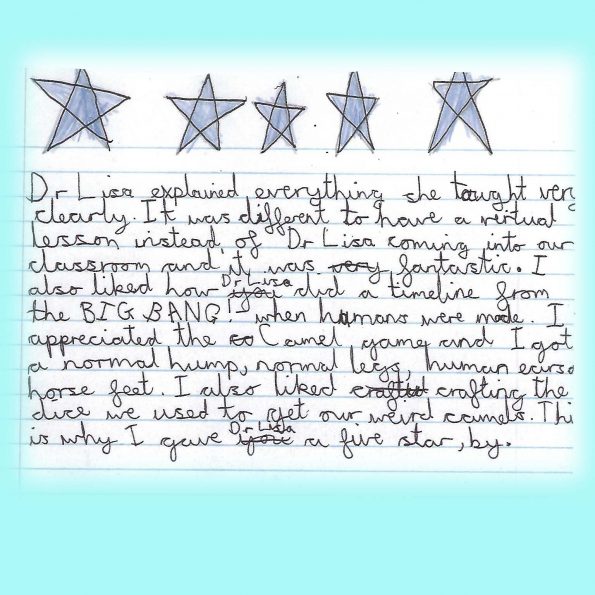 Dr Lisa explained everything she taught very
clearly. It was different to have a virtual
lesson instead of Dr Lisa coming into our
classroom and it was very fantastic. I
also liked how Dr Lisa did a timeline from
the BIG BANG! when humans were made. I
appreciated the Camel game and I got
a normal hump, normal legs, human ears
horse feet. I also liked crafted crafting the
dice we used to get our weird camels. Thi
is why I gave Dr Lisa a five star, by.